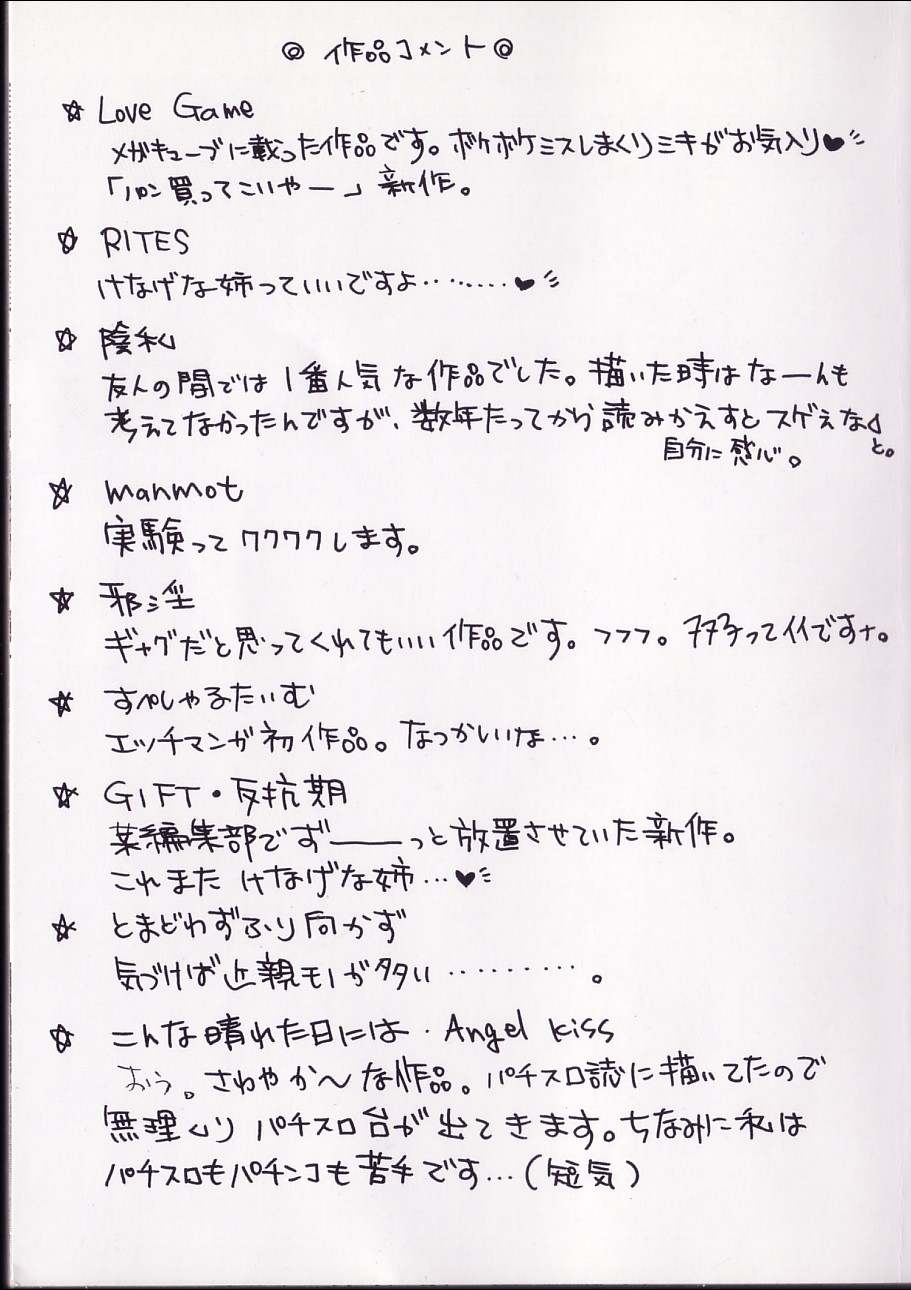 ◎ 作品コメント ◎
☆ Love Game
メガキューブに載った作品です。ボケボケミスしまくりミキがお気入り♥
「パン買ってこいやー」新作。
☆ RITES
けなげな姉っていいですよ‥‥‥‥♥
☆ 陰私
友人の間では1番人気な作品でした。描いた時はなーんも
考えてなかったんですが、数年たってから読みかえすとスゲえなぁと。
自分に感心。
☆ manmot
実験ってワクワクします。
☆ 邪淫
ギャグだと思ってくれてもいい作品です。フフフ。ナナ子ってイイですナ。
☆ すぺしゃるたいむ
エッチマンガ初作品。なつかいいな…。
☆ GIFT・反抗期
某編集部でずーーっと放置させていた新作。
これまたけなげな姉…♥
☆ とまどわずふり向かず
気づけば近親モノが多い‥‥‥‥‥。
☆ こんな晴れた日には・Angel kiss
おぅ。さわやか〜な作品。パチスロ誌に描いてたので
無理くりパチスロ台が出てきます。ちなみに私は
パチスロもパチンコも苦手です…(短気)